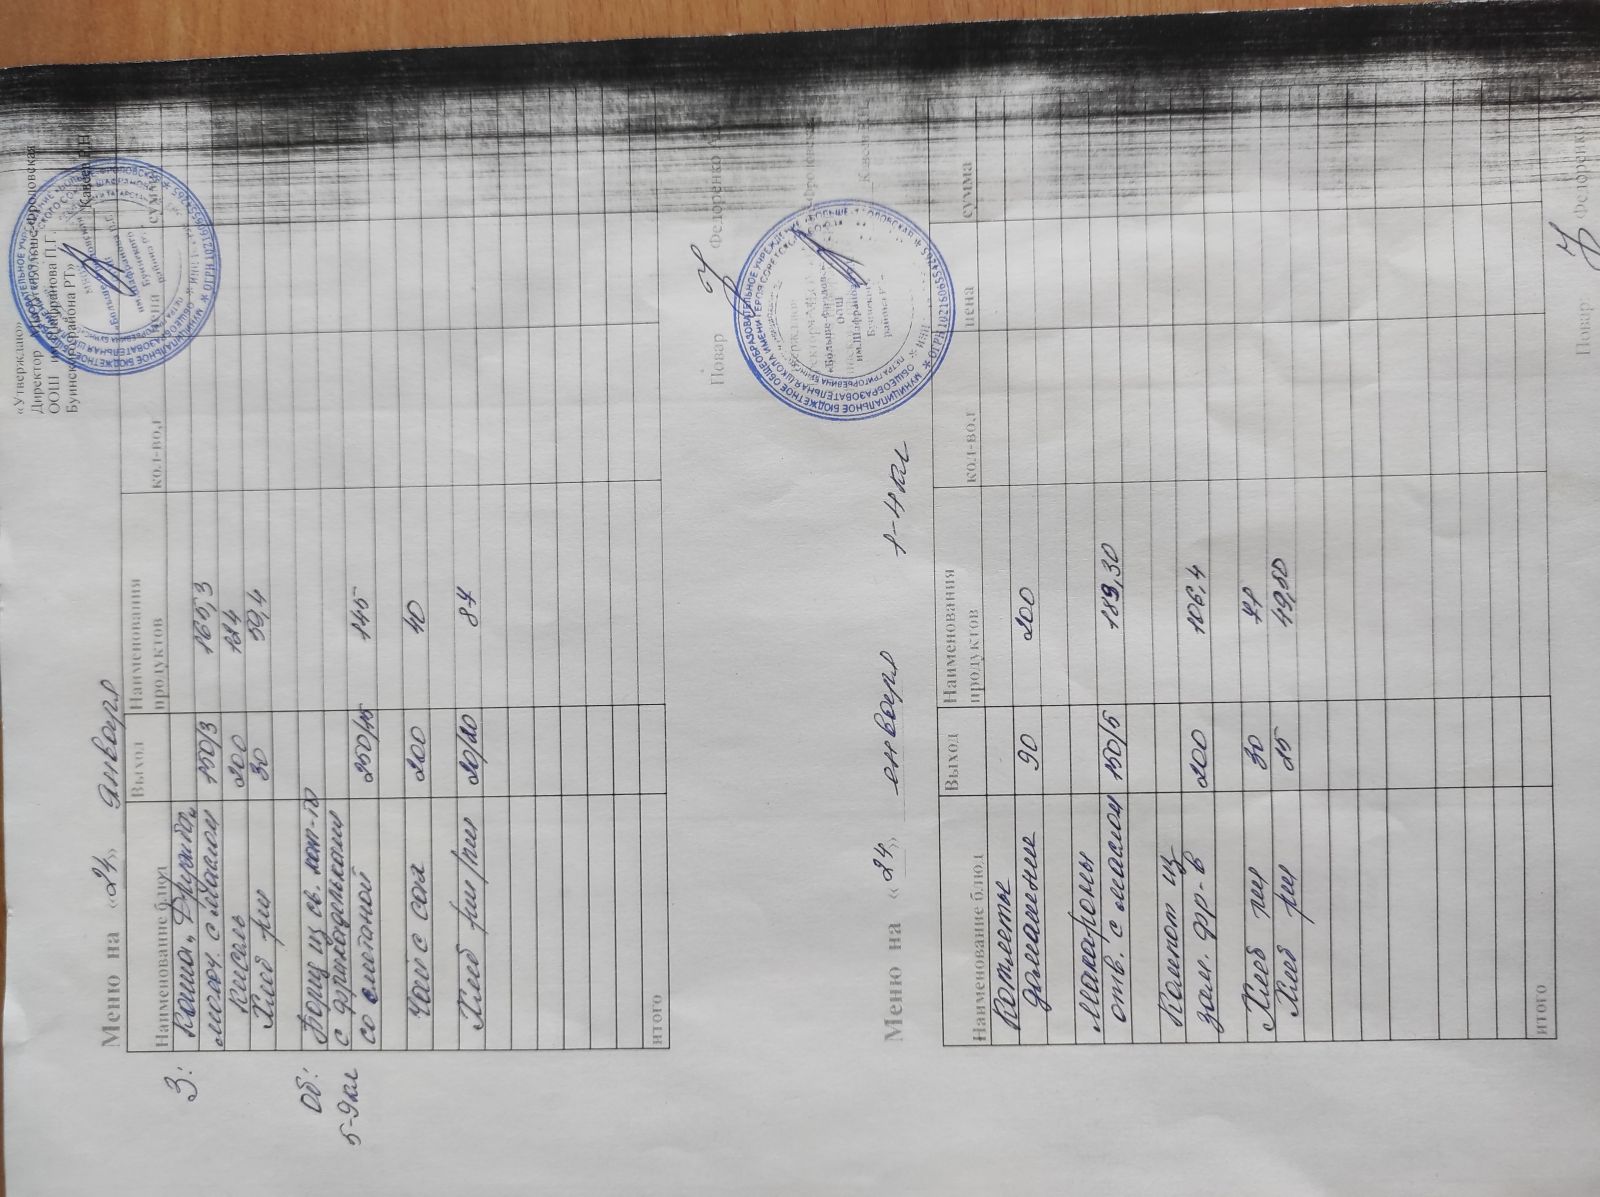 «Утверждаю»
Директор
ООШ им. Шафранова П.Г.
Буинского района РТ»
Меню на «24» января
Наименование блюд Выход Наименования продуктов кол-вод цена сумма
З:
Каша „Дружба„
молоч. с маслом 150/3 165,3
Кисель 200 124
Хлеб рж 30 59,4
Об:
5-9 кл
Борщ из св. кап-ты
с фрикадельками
со сметаной 250/15 145
Чай с сах 200 40
Хлеб рж/пш 20/20 87
итого
Повар Федоренко
Меню на «24» январь 1-4 кл
Наименование блюд Выход Наименования продуктов кол-вод цена сумма
Котлеты
домашние 90 200
Макароны
отв. с маслом 150/5 189,30
Компот из
зам. фр-в 200 106,4
Хлеб пш 30 71
Хлеб рж 25 49,50
итого
Повар: Федоренко